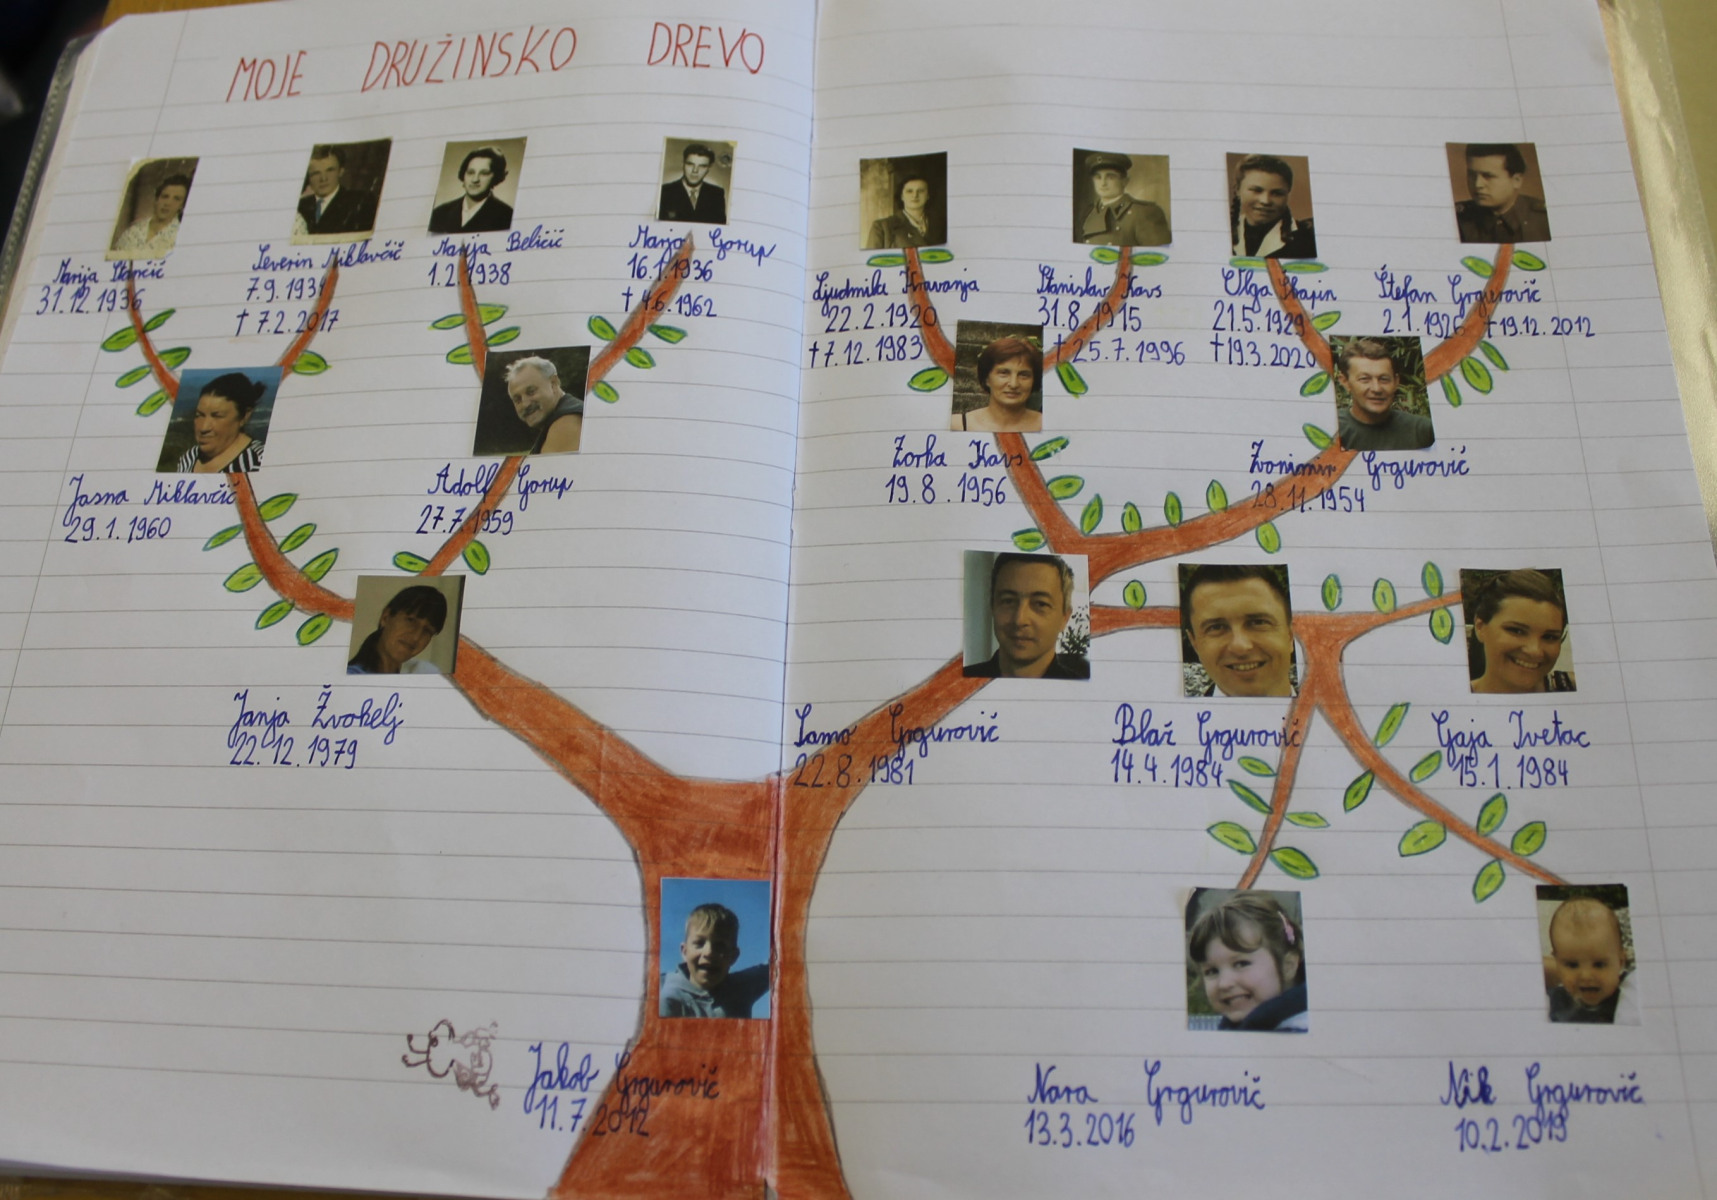 MOJE DRUŽINSKO DREVO
Marija
31.12.1936
Severin Miklavčič
7.9.193
† 7.2.2017
Marija Beličič
1.2.1938
Marjo Gorup
16.1.1936
† 4.6.1962
Ljudmila Kravanja
22.2.1920
†7.12.1983
Stanislav Kavs
31.8.1915
†25.7.1996
Olga Škajin
21.5.1929
†19.3.2020
Štefan Grgurovič
2.1.1926 †19.12.2012
Jasna Miklavčič
29.1.1960
Adolf Gorup
27.7.1959
Zorka Kavs
19.8.1956
Zvonimir Grgurovič
28.11.1954
Janja Žvokelj
22.12.1979
Samo Grgurovič
22.8.1981
Blaž Grgurovič
14.4.1984
Gaja Ivetac
15.1.1984
Jakob Grgurovič
11.7.2012
Nara Grgurovič
13.3.2016
Nik Grgurovič
10.2.2019